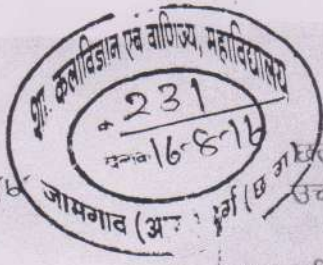 शा. कलाविज्ञान एवं वाणिज्य, महाविद्यालय
क्र 231
दिनांक 16-8-16
जामगाव (अ दुर्ग (छ ग)
उच